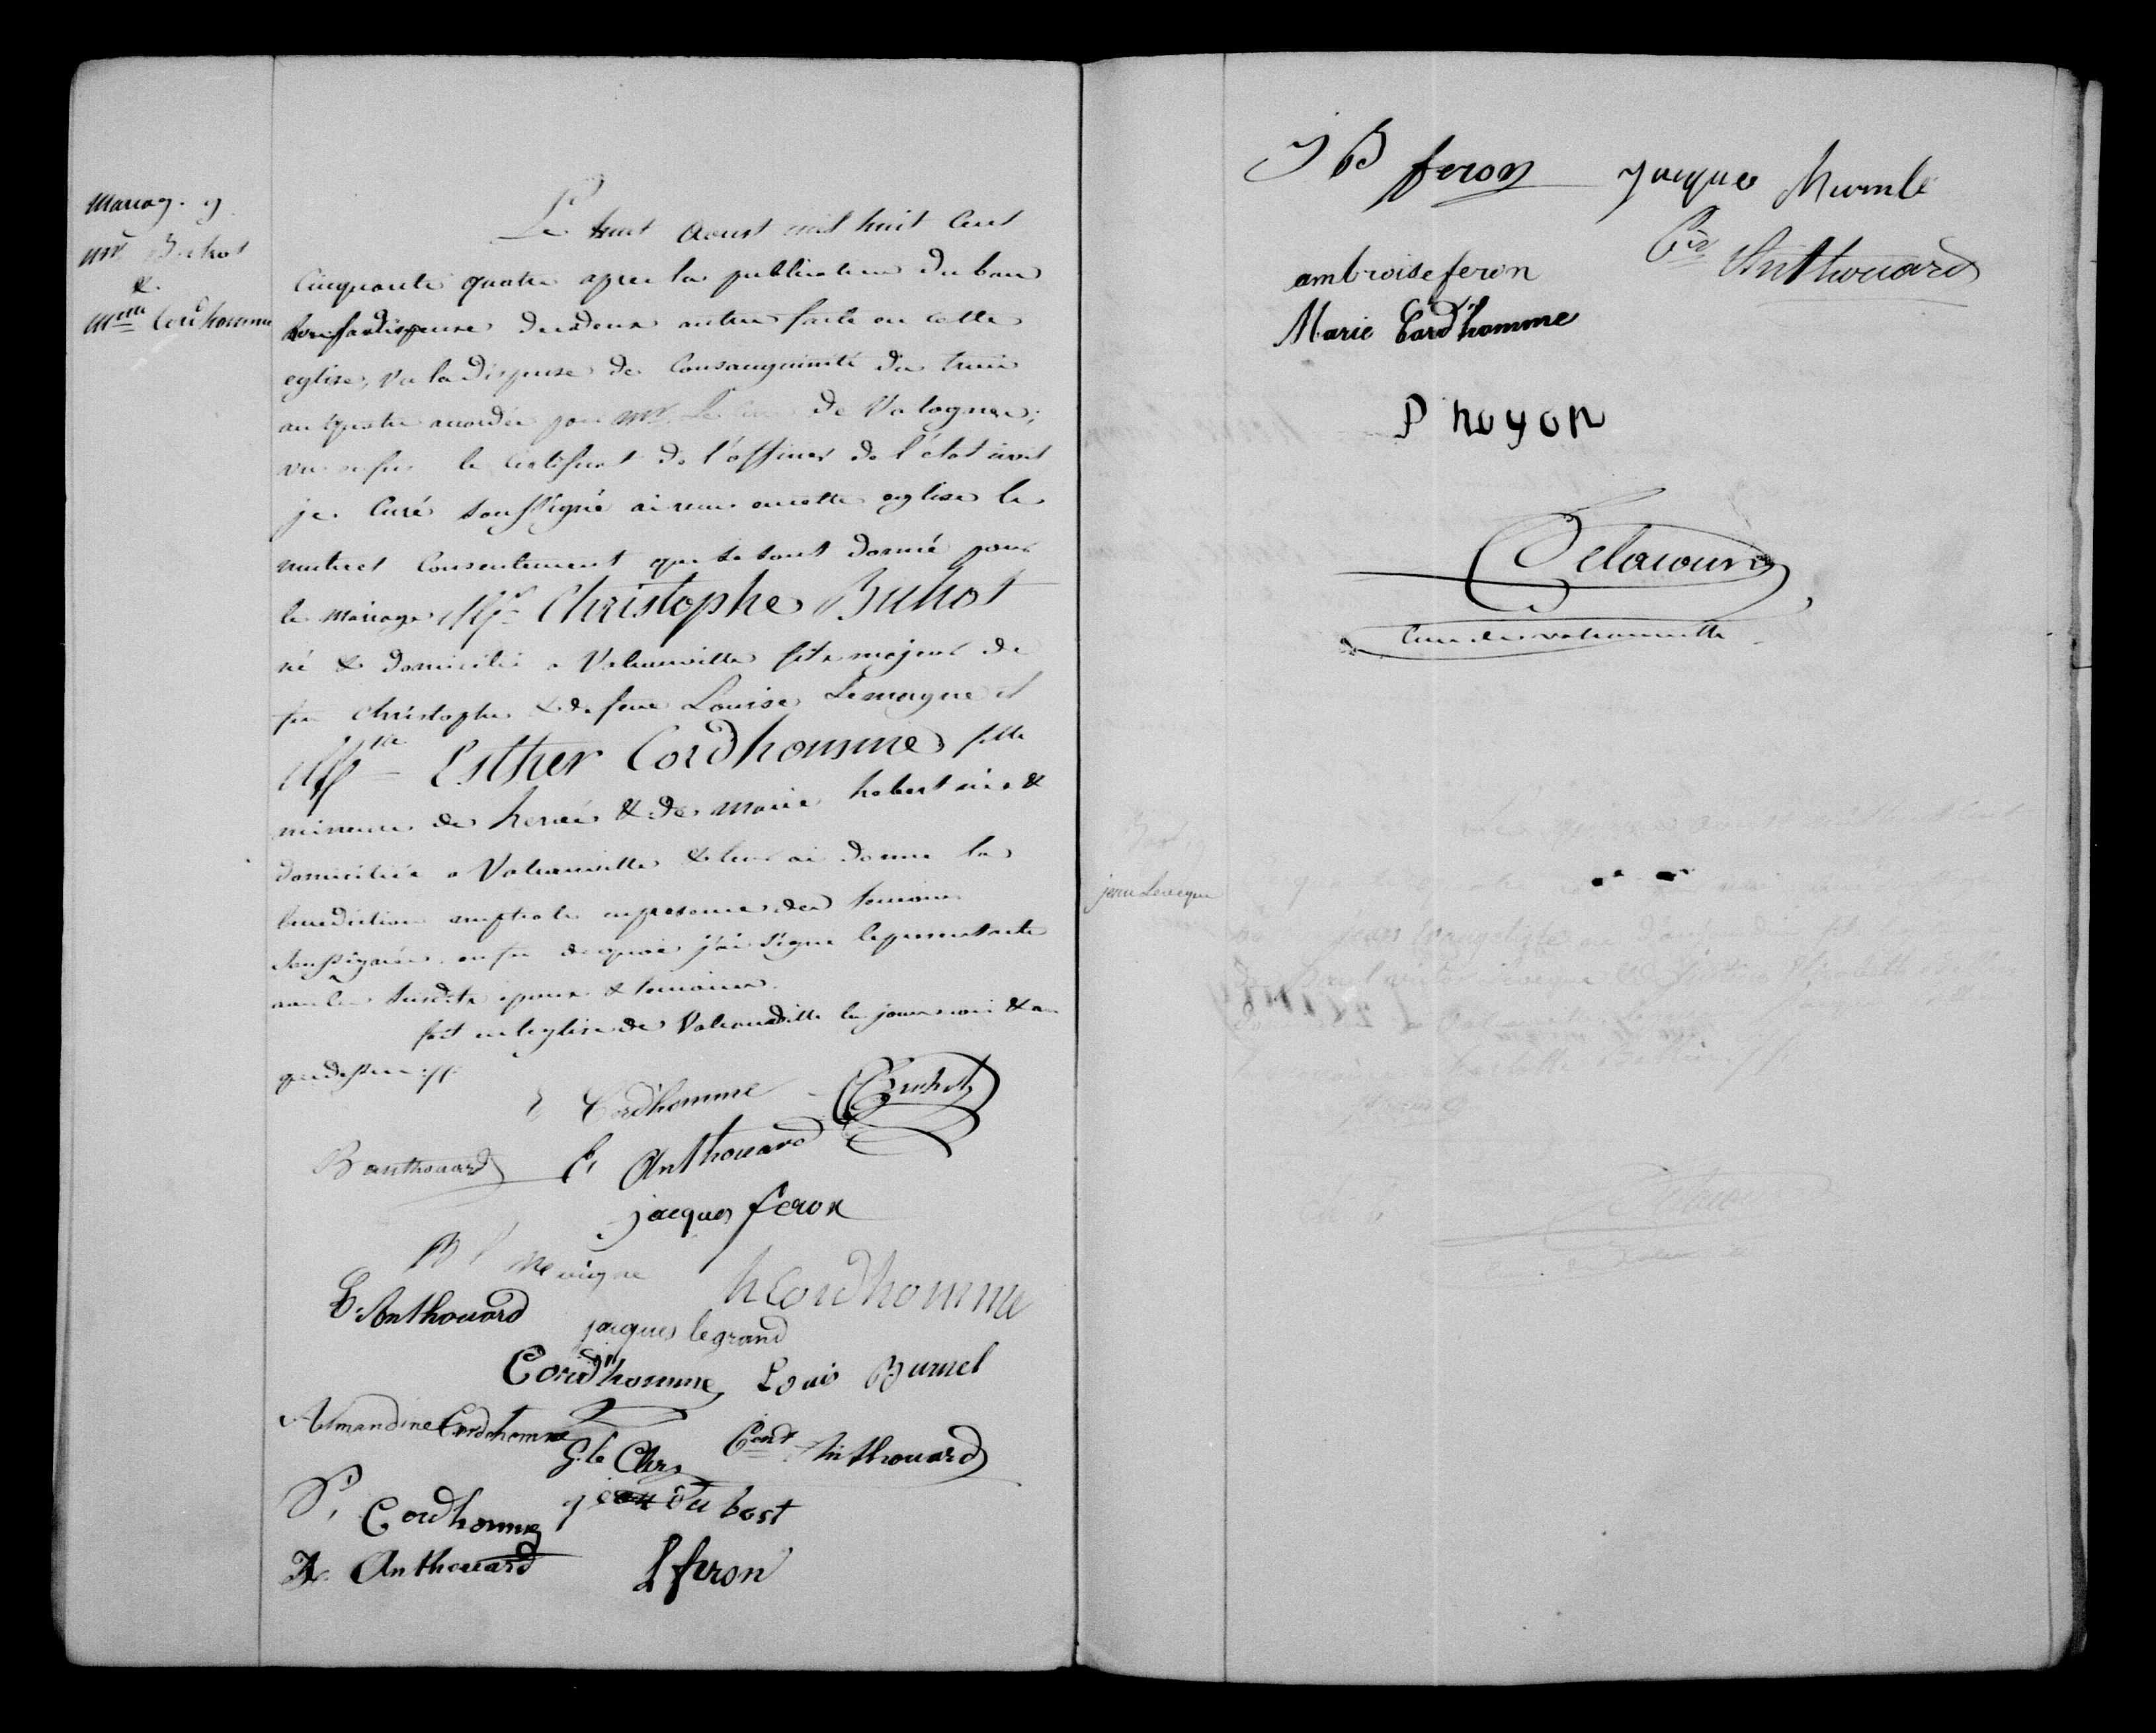 mariag. 9
mr. Buhot
&
mme Cordhomme
Le huit Aoust mil huit Cent
Cinquante quatre apres la publication du ban
dispense des deux autres faite en cette
eglise, vu la dispense de Consanguinité du trois
au quatre accordée par Mr. de Valognes;
vu enfin le Certificat de l'officier de l'état civil
je Curé soussigné ai recu en cette eglise le
mutuel Consentement que se sont donné pour
le mariage Mr Christophe Buhot
né & domicilié a Valcanville fils majeur de
feu Christophe & de feue Louise Lemagne et
Mlle Esther Cordhomme fille
mineure de hervé & de marie hebert née &
domiciliée a Valcanville & leur ai donné la
benediction nuptiale en presence des temoins
soussignés. en foi de quoi j'ai signé le present acte
avec les susdits epoux & temoins.
fait en l'eglise de Valcanville les jour mois & an
que dessus ://:
E Cordhomme Buhot
B anthouard E Anthouard
jacques feron
B l Mauigne
h Cordhomme
E. Anthouard
jacques legrand
Cord'homme Louis Burnel
Almandine Cordhomme
G. le Cler Cent Anthouard
P. Cordhomme
jean du bost
A. Anthouard L feron
J B feron Jacques
Cir Anthouard
ambroise feron
Marie Cord'homme
P noyon
Delacour
Cure de valcanville
jean Leveque
jean Evangeliste